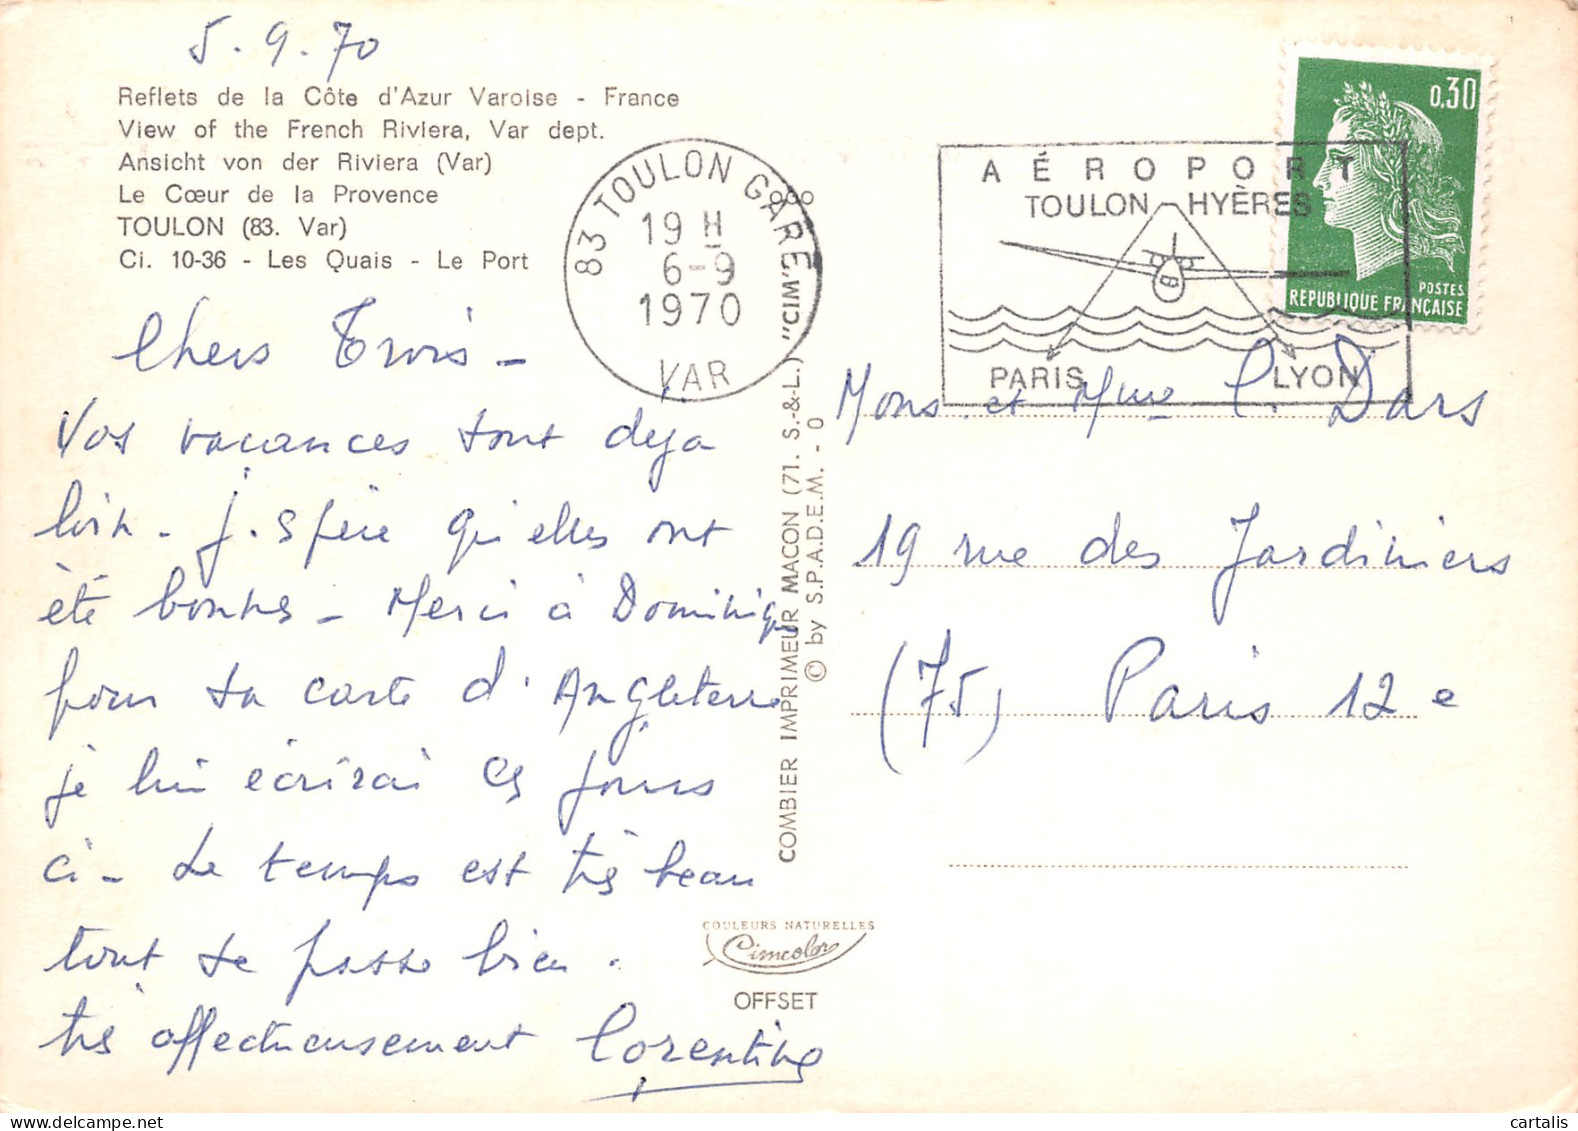 5.9.70
Reflets de la Côte d'Azur Varoise - France
View of the French Riviera, Var dept.
Ansicht von der Riviera (Var)
Le Cœur de la Provence
TOULON (83. Var)
Ci. 10-36 - Les Quais - Le Port
Chers Trois -
Vos vacances sont deja
loin - j'espère qu'elles ont
été bonnes - Merci à Dominique
pour sa carte d'Angleterre
je lui écrirai ces jours
ci - Le temps est très beau
tout se passe bien.
très affectueusement Corentine
83 TOULON GARE
19 H
6-9
1970
VAR
COMBIER IMPRIMEUR MACON (71. S.-&-L.) "CIM"
© by S.P.A.D.E.M. - 0
COULEURS NATURELLES
Cimcolor
OFFSET
AÉROPORT
TOULON-HYÈRES
PARIS
LYON
0,30
POSTES
REPUBLIQUE FRANÇAISE
Mons. et Mme C. Dars
19 rue des Jardiniers
(75) Paris 12e
cartalis